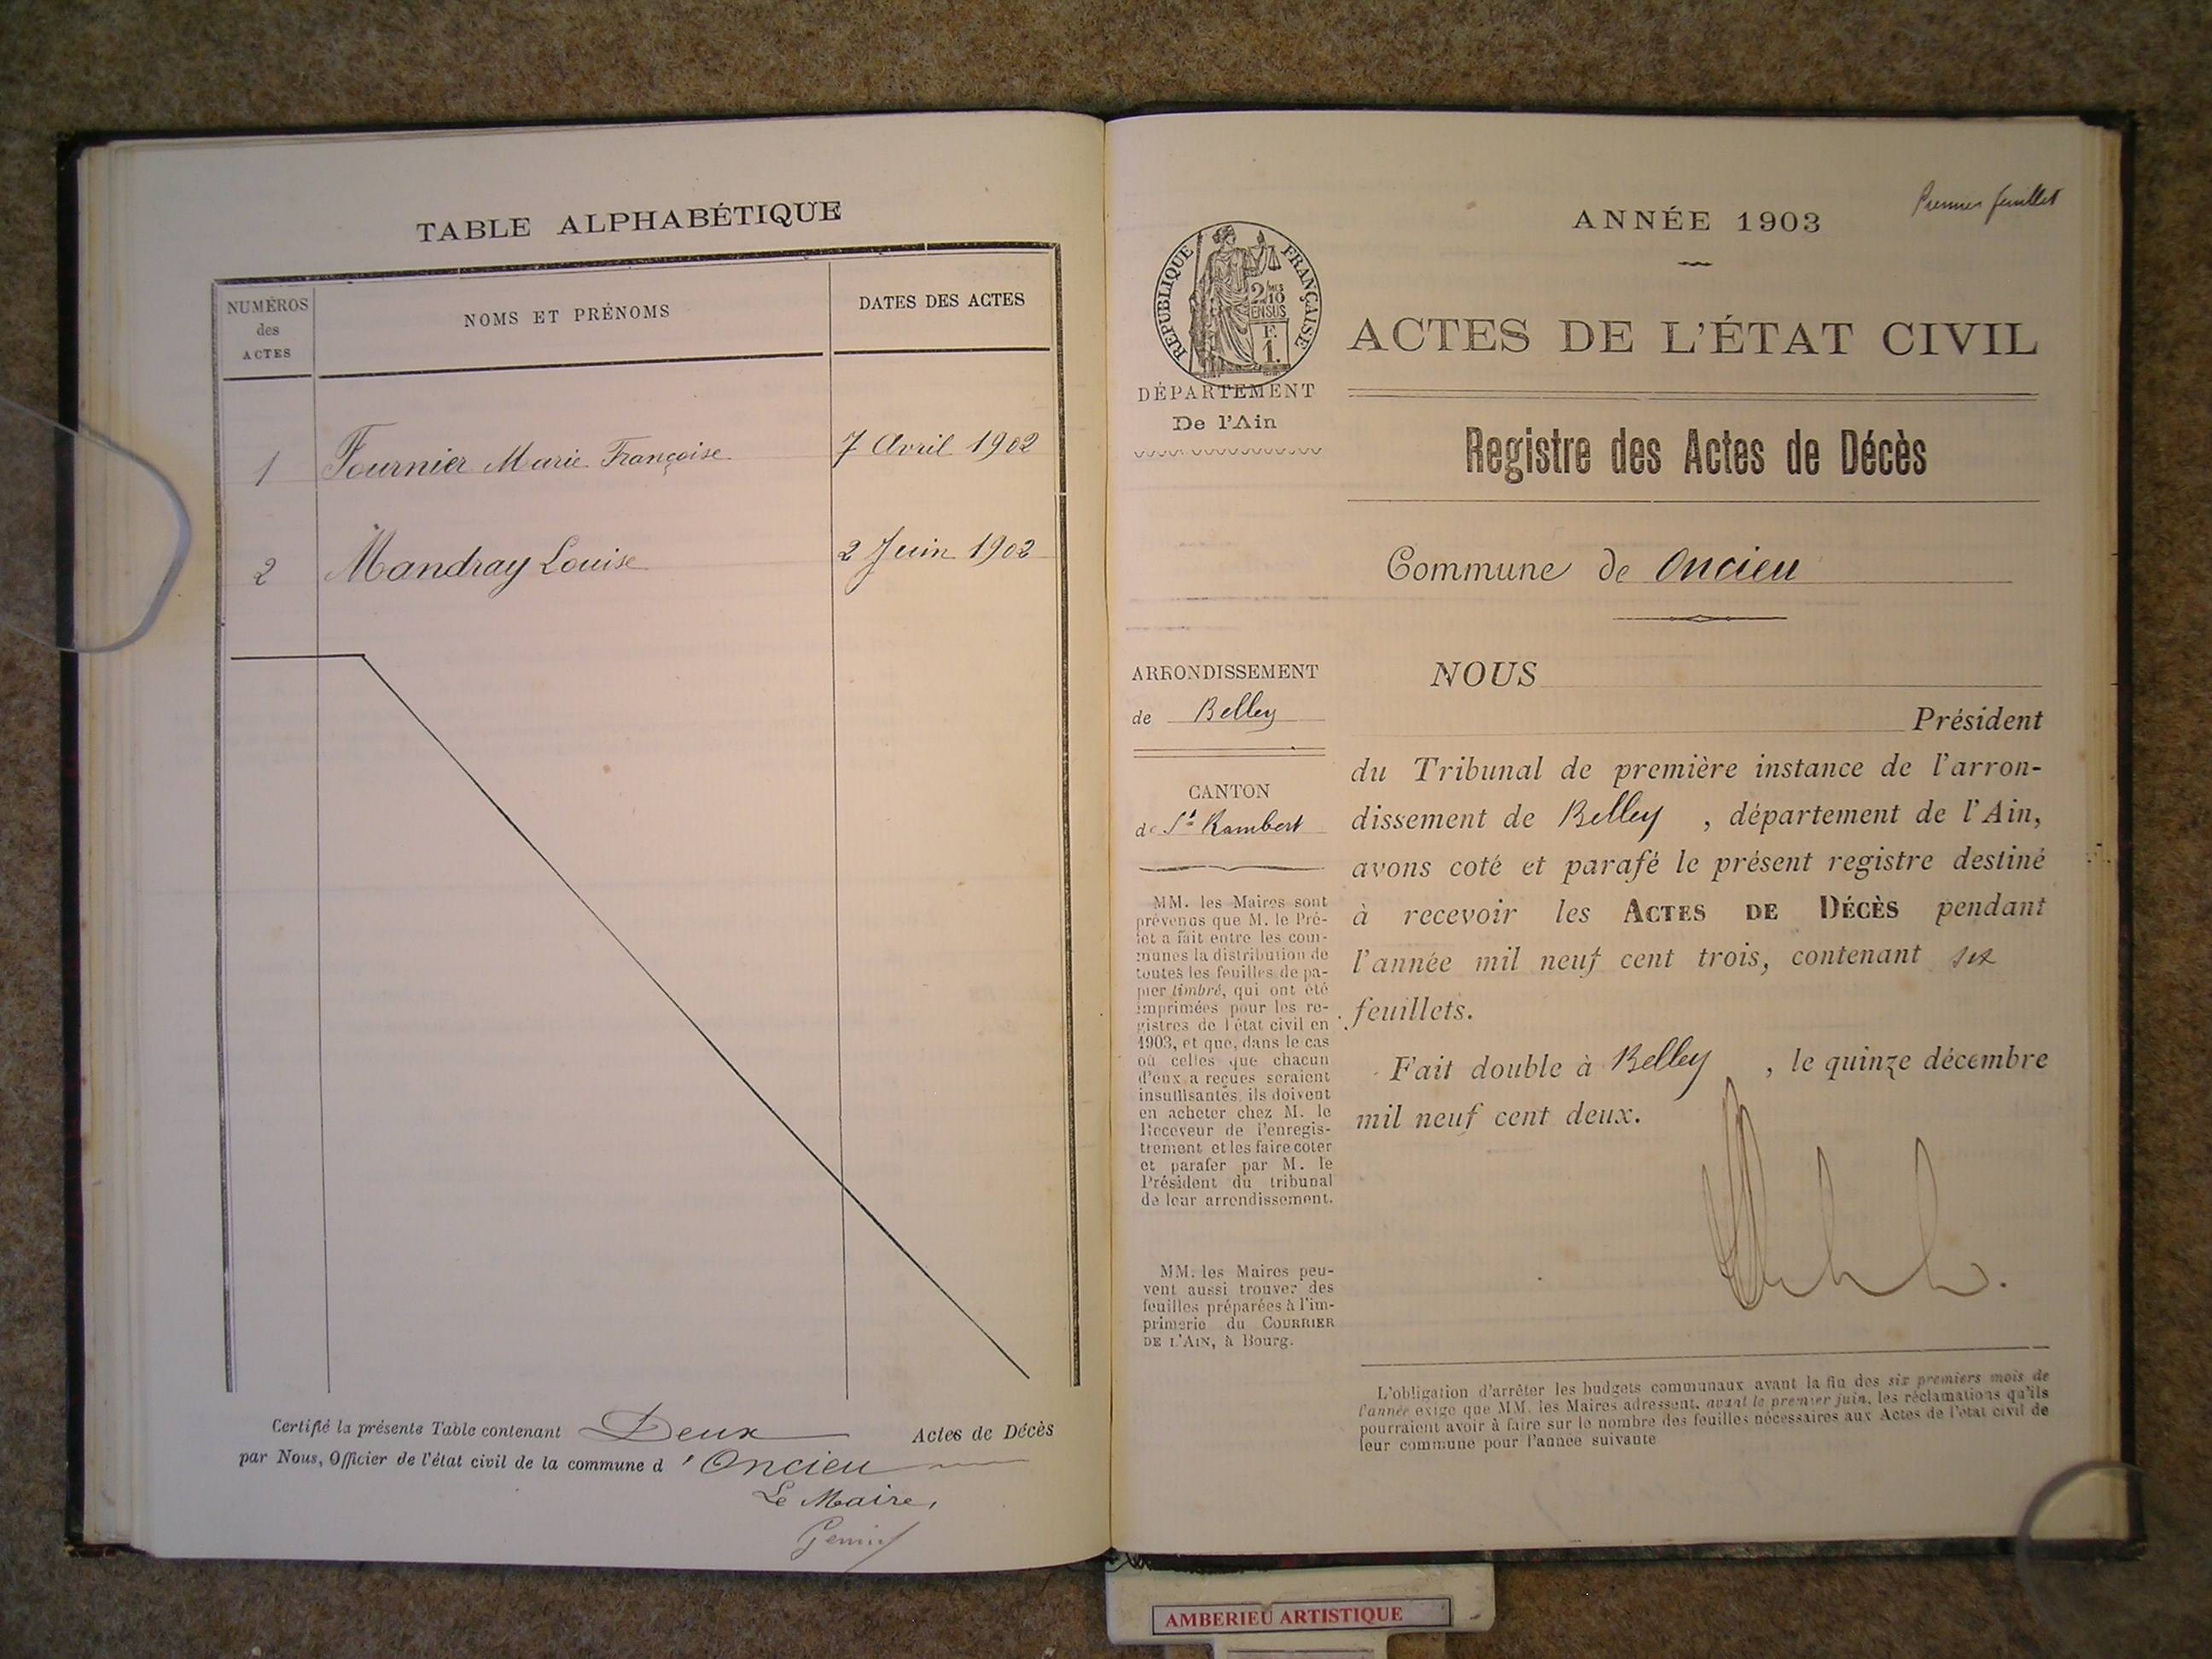 TABLE ALPHABÉTIQUE
NUMÉROS
des
ACTES
NOMS ET PRÉNOMS
DATES DES ACTES
1 Fournier Marie Françoise 7 Avril 1902
2 Mandray Louise 2 Juin 1902
Certifié la présente Table contenant Deux Actes de Décès
par Nous, Officier de l'état civil de la commune d'Oncieu
Le Maire,
Premier feuillet
ANNÉE 1903
RÉPUBLIQUE FRANÇAISE
ACTES DE L'ÉTAT CIVIL
DÉPARTEMENT
De l'Ain
Registre des Actes de Décès
Commune de Oncieu
ARRONDISSEMENT
de Belley
CANTON
de St Rambert
MM. les Maires sont
prévenus que M. le Pré-
fet a fait entre les com-
munes la distribution de
toutes les feuilles de pa-
pier timbré, qui ont été
imprimées pour les re-
gistres de l'état civil en
1903, et que, dans le cas
où celles que chacun
d'eux a reçues seraient
insuffisantes, ils doivent
en acheter chez M. le
Receveur de l'enregis-
trement et les faire coter
et parafer par M. le
Président du tribunal
de leur arrondissement.
MM. les Maires peu-
vent aussi trouver des
feuilles préparées à l'im-
primerie du COURRIER
DE L'AIN, à Bourg.
NOUS
Président
du Tribunal de première instance de l'arron-
dissement de Belley, département de l'Ain,
avons coté et parafé le présent registre destiné
à recevoir les ACTES DE DÉCÈS pendant
l'année mil neuf cent trois, contenant six
feuillets.
Fait double à Belley, le quinze décembre
mil neuf cent deux.
L'obligation d'arrêter les budgets communaux avant la fin des six premiers mois de
l'année exige que MM. les Maires adressent, avant le premier juin, les réclamations qu'ils
pourraient avoir à faire sur le nombre des feuilles nécessaires aux Actes de l'état civil de
leur commune pour l'année suivante
AMBERIEU ARTISTIQUE